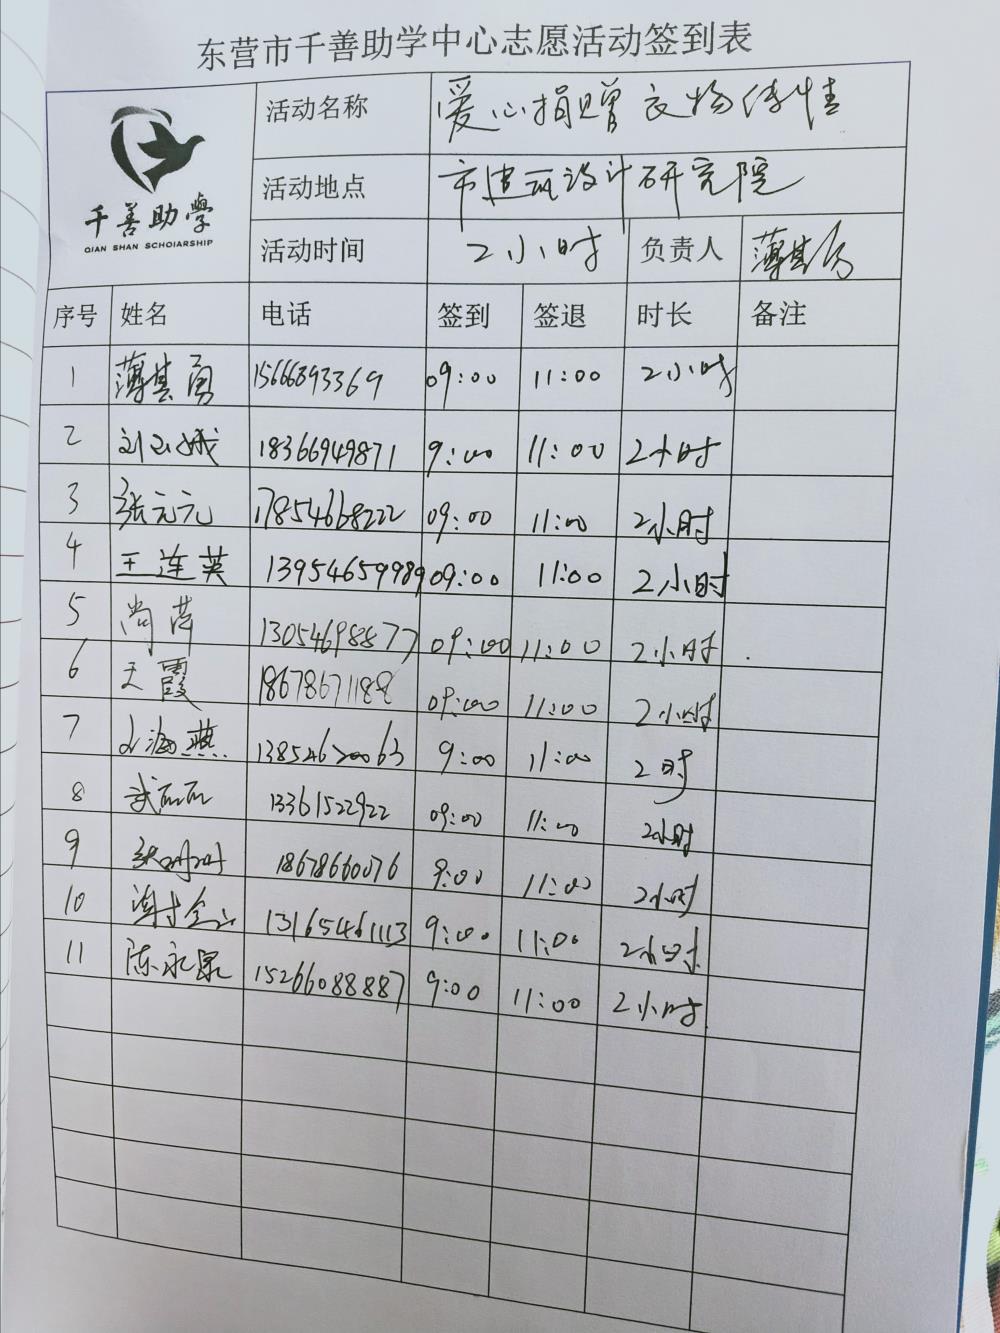 东营市千善助学中心志愿活动签到表
千善助學
QIAN SHAN SCHOIARSHIP
活动名称 爱心捐赠衣物传情
活动地点 市建筑设计研究院
活动时间 2小时 负责人 薄其勇
序号 姓名 电话 签到 签退 时长 备注
1 薄其勇 15666393369 09:00 11:00 2小时
2 刘玉娥 18366949871 9:00 11:00 2小时
3 张元元 17854668222 09:00 11:00 2小时
4 王连英 13954659989 09:00 11:00 2小时
5 尚苗 13054698877 09:00 11:00 2小时
6 王霞 18678671188 09:00 11:00 2小时
7 海燕 13854620063 9:00 11:00 2时
8 武 13361522922 09:00 11:00 2小时
9 张 18678660076 9:00 11:00 2小时
10 13165461113 9:00 11:00 2小时
11 陈永泉 15266088887 9:00 11:00 2小时